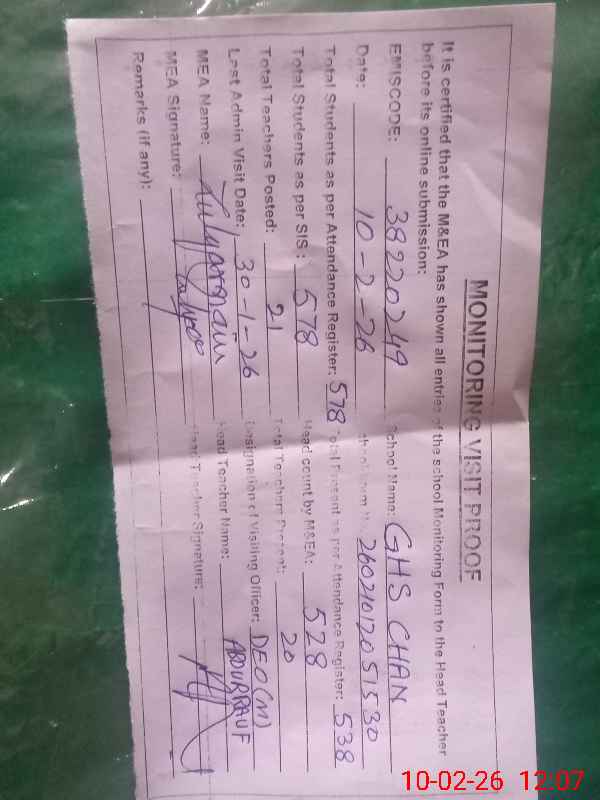 MONITORING VISIT PROOF
It is certified that the M&EA has shown all entries of the school Monitoring Form to the Head Teacher
before its online submission:
EMISCODE: 38220249 School Name: GHS CHAN
Date: 10-2-26 26021012051530
Total Students as per Attendance Register: 578 Total Present as per Attendance Register: 538
Total Students as per SIS: 578 Head count by M&EA: 528
Total Teachers Posted: 21 Total Teachers Present: 20
Last Admin Visit Date: 30-1-26 Designation of Visiting Officer: DEO(M)
MEA Name: Head Teacher Name: ABDURRAUF
MEA Signature: Head Teacher Signature:
Remarks (if any):
10-02-26 12:07